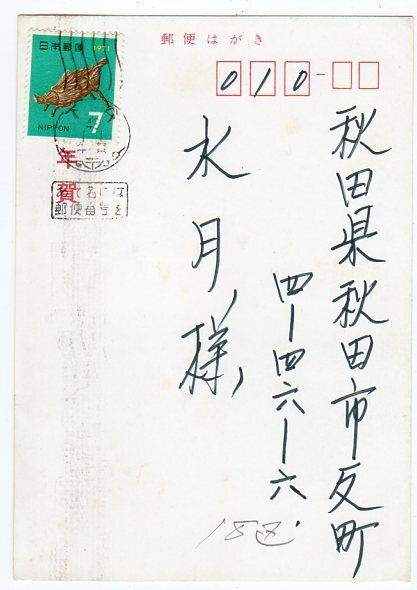 郵便はがき
日本郵便 1971
NIPPON 7
年賀
あて名には
郵便番号を
010-
秋田県秋田市反町
四ー四六ー六
水月様
18区